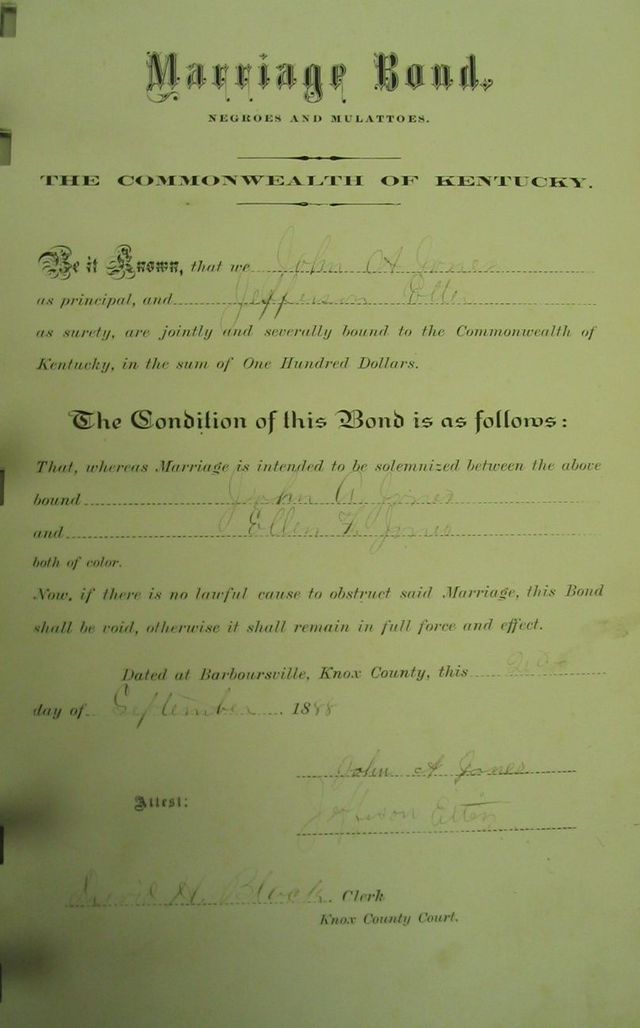 Marriage Bond.
NEGROES AND MULATTOES.
THE COMMONWEALTH OF KENTUCKY.
Be it Known, that we John A Jones
as principal, and Jefferson
as surety, are jointly and severally bound to the Commonwealth of
Kentucky, in the sum of One Hundred Dollars.
The Condition of this Bond is as follows:
That, whereas Marriage is intended to be solemnized between the above
bound John A Jones
and Ellen F. Jones
both of color.
Now, if there is no lawful cause to obstruct said Marriage, this Bond
shall be void, otherwise it shall remain in full force and effect.
Dated at Barboursville, Knox County, this
day of September 1888
John A Jones
Attest:
David H. Black. Clerk
Knox County Court.